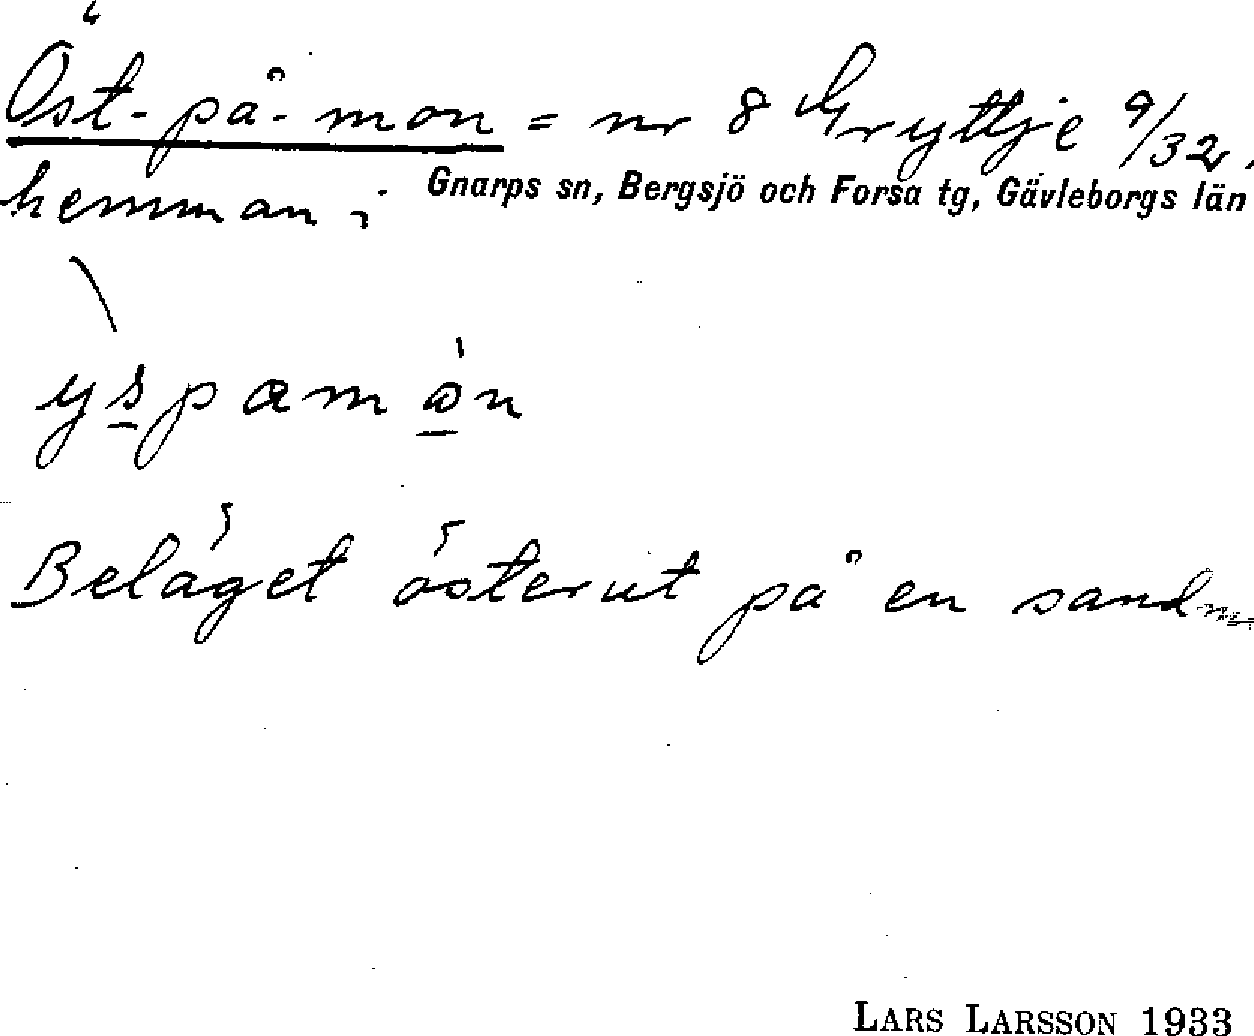 Öst-på-mon = nr 8 Gryttje 9/32.
hemman i Gnarps sn, Bergsjö och Forsa tg, Gävleborgs län
yspamòn
Beläget österut på en sandm
LARS LARSSON 1933